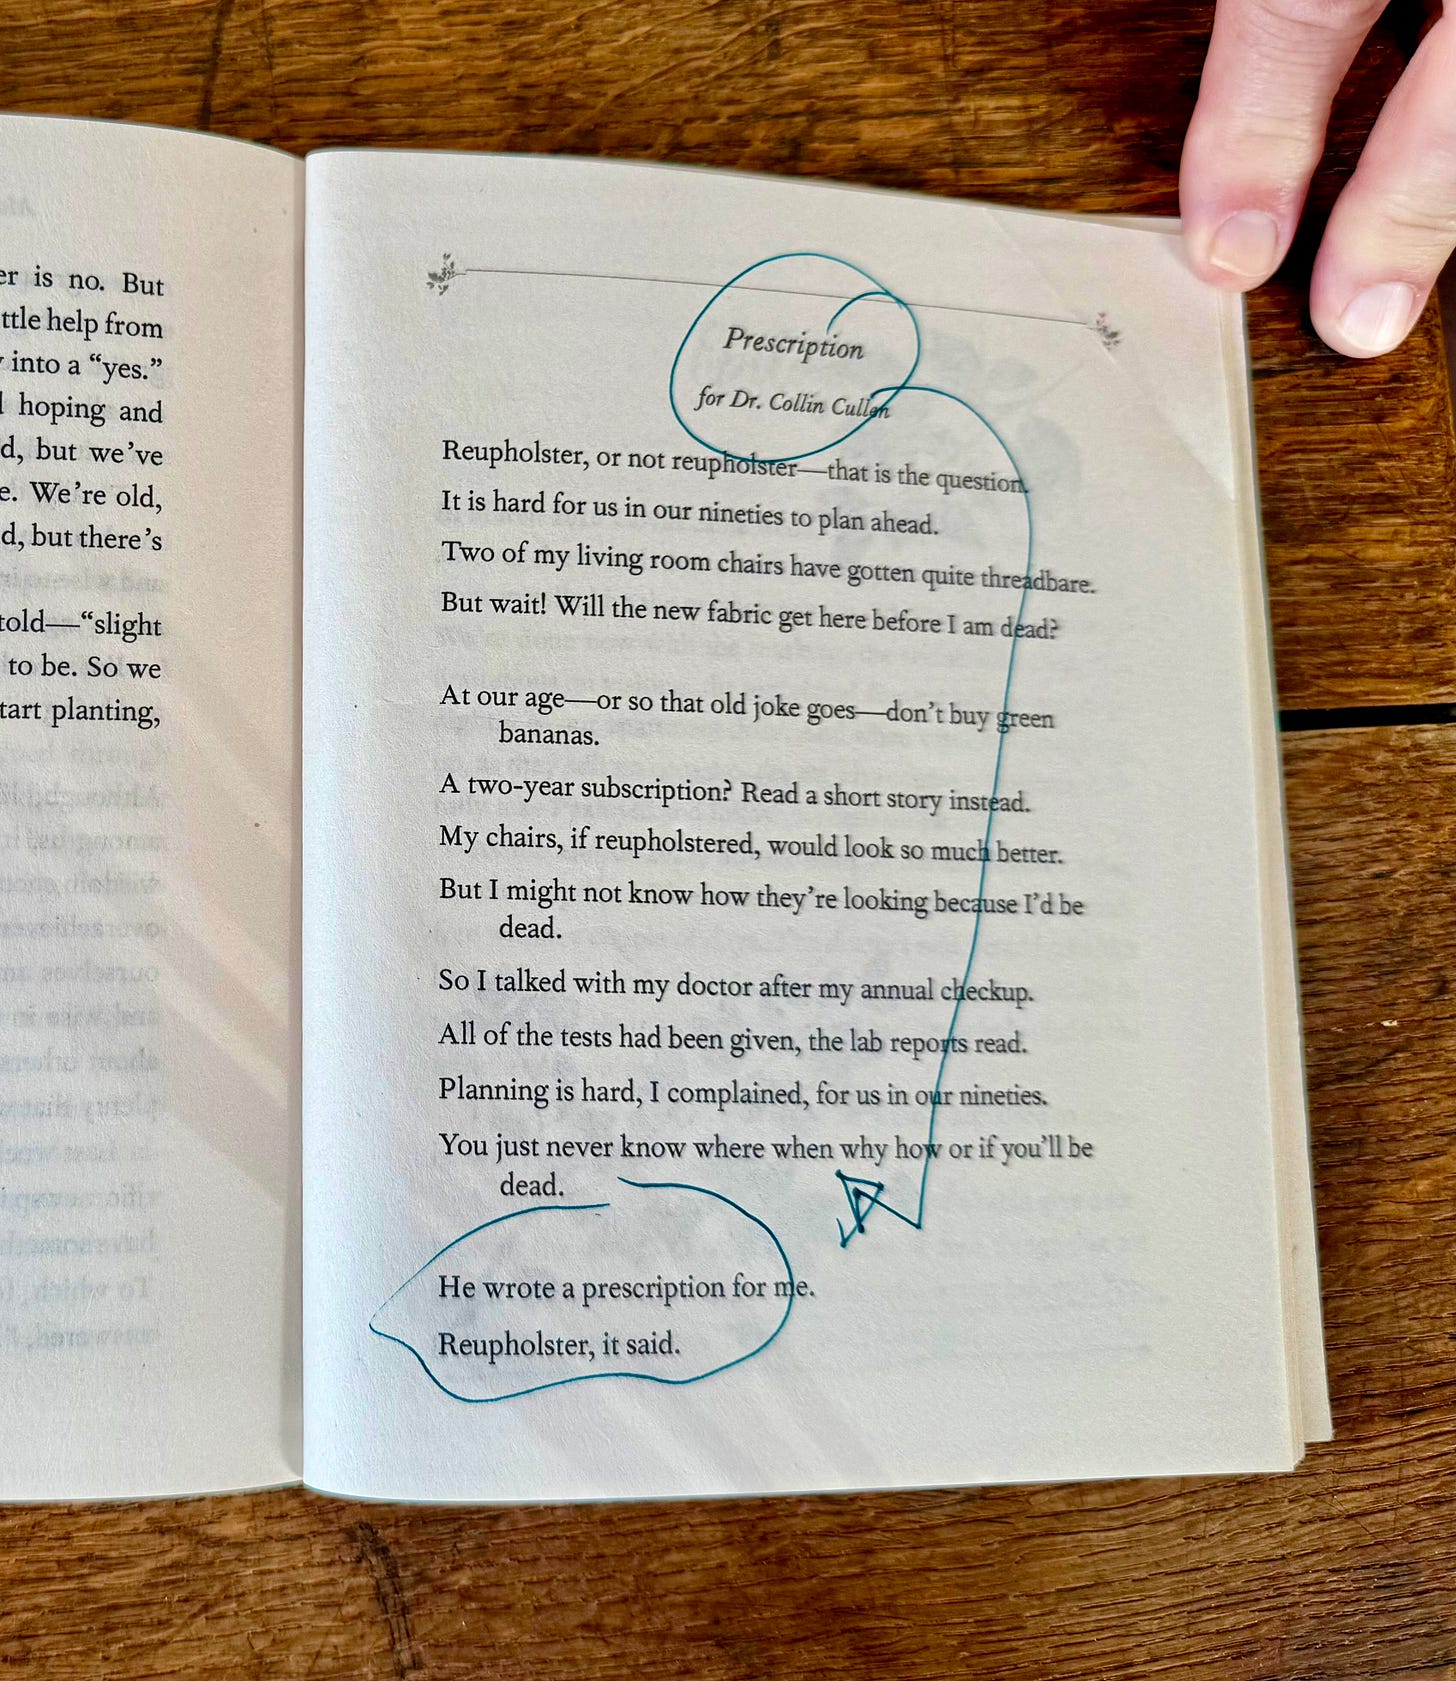 is no. But
help from
into a “yes.”
hoping and
but we’ve
We’re old,
but there’s
told—“slight
to be. So we
planting,
Prescription
for Dr. Collin Cullen
Reupholster, or not reupholster—that is the question.
It is hard for us in our nineties to plan ahead.
Two of my living room chairs have gotten quite threadbare.
But wait! Will the new fabric get here before I am dead?
At our age—or so that old joke goes—don’t buy green
bananas.
A two-year subscription? Read a short story instead.
My chairs, if reupholstered, would look so much better.
But I might not know how they’re looking because I’d be
dead.
So I talked with my doctor after my annual checkup.
All of the tests had been given, the lab reports read.
Planning is hard, I complained, for us in our nineties.
You just never know where when why how or if you’ll be
dead.
He wrote a prescription for me.
Reupholster, it said.